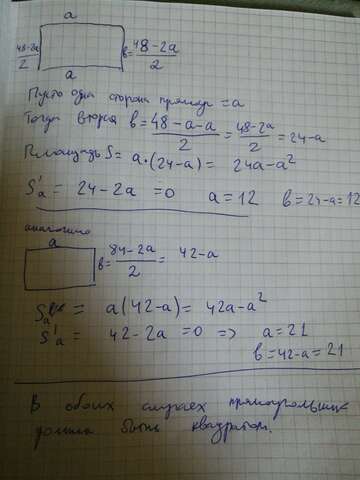 a
48-2a/2
b=48-2a/2
a
Пусть одна сторона прямоуг = a
Тогда вторая b = 48-a-a/2 = 48-2a/2 = 24-a
Площадь S = a·(24-a) = 24a-a²
S'a = 24-2a = 0 a=12 b=24-a=12
аналогично
a
b=84-2a/2 = 42-a
= a(42-a) = 42a-a²
S'a = 42-2a =0 => a=21
b=42-a=21
В обоих случаях прямоугольник
должен быть квадратом.